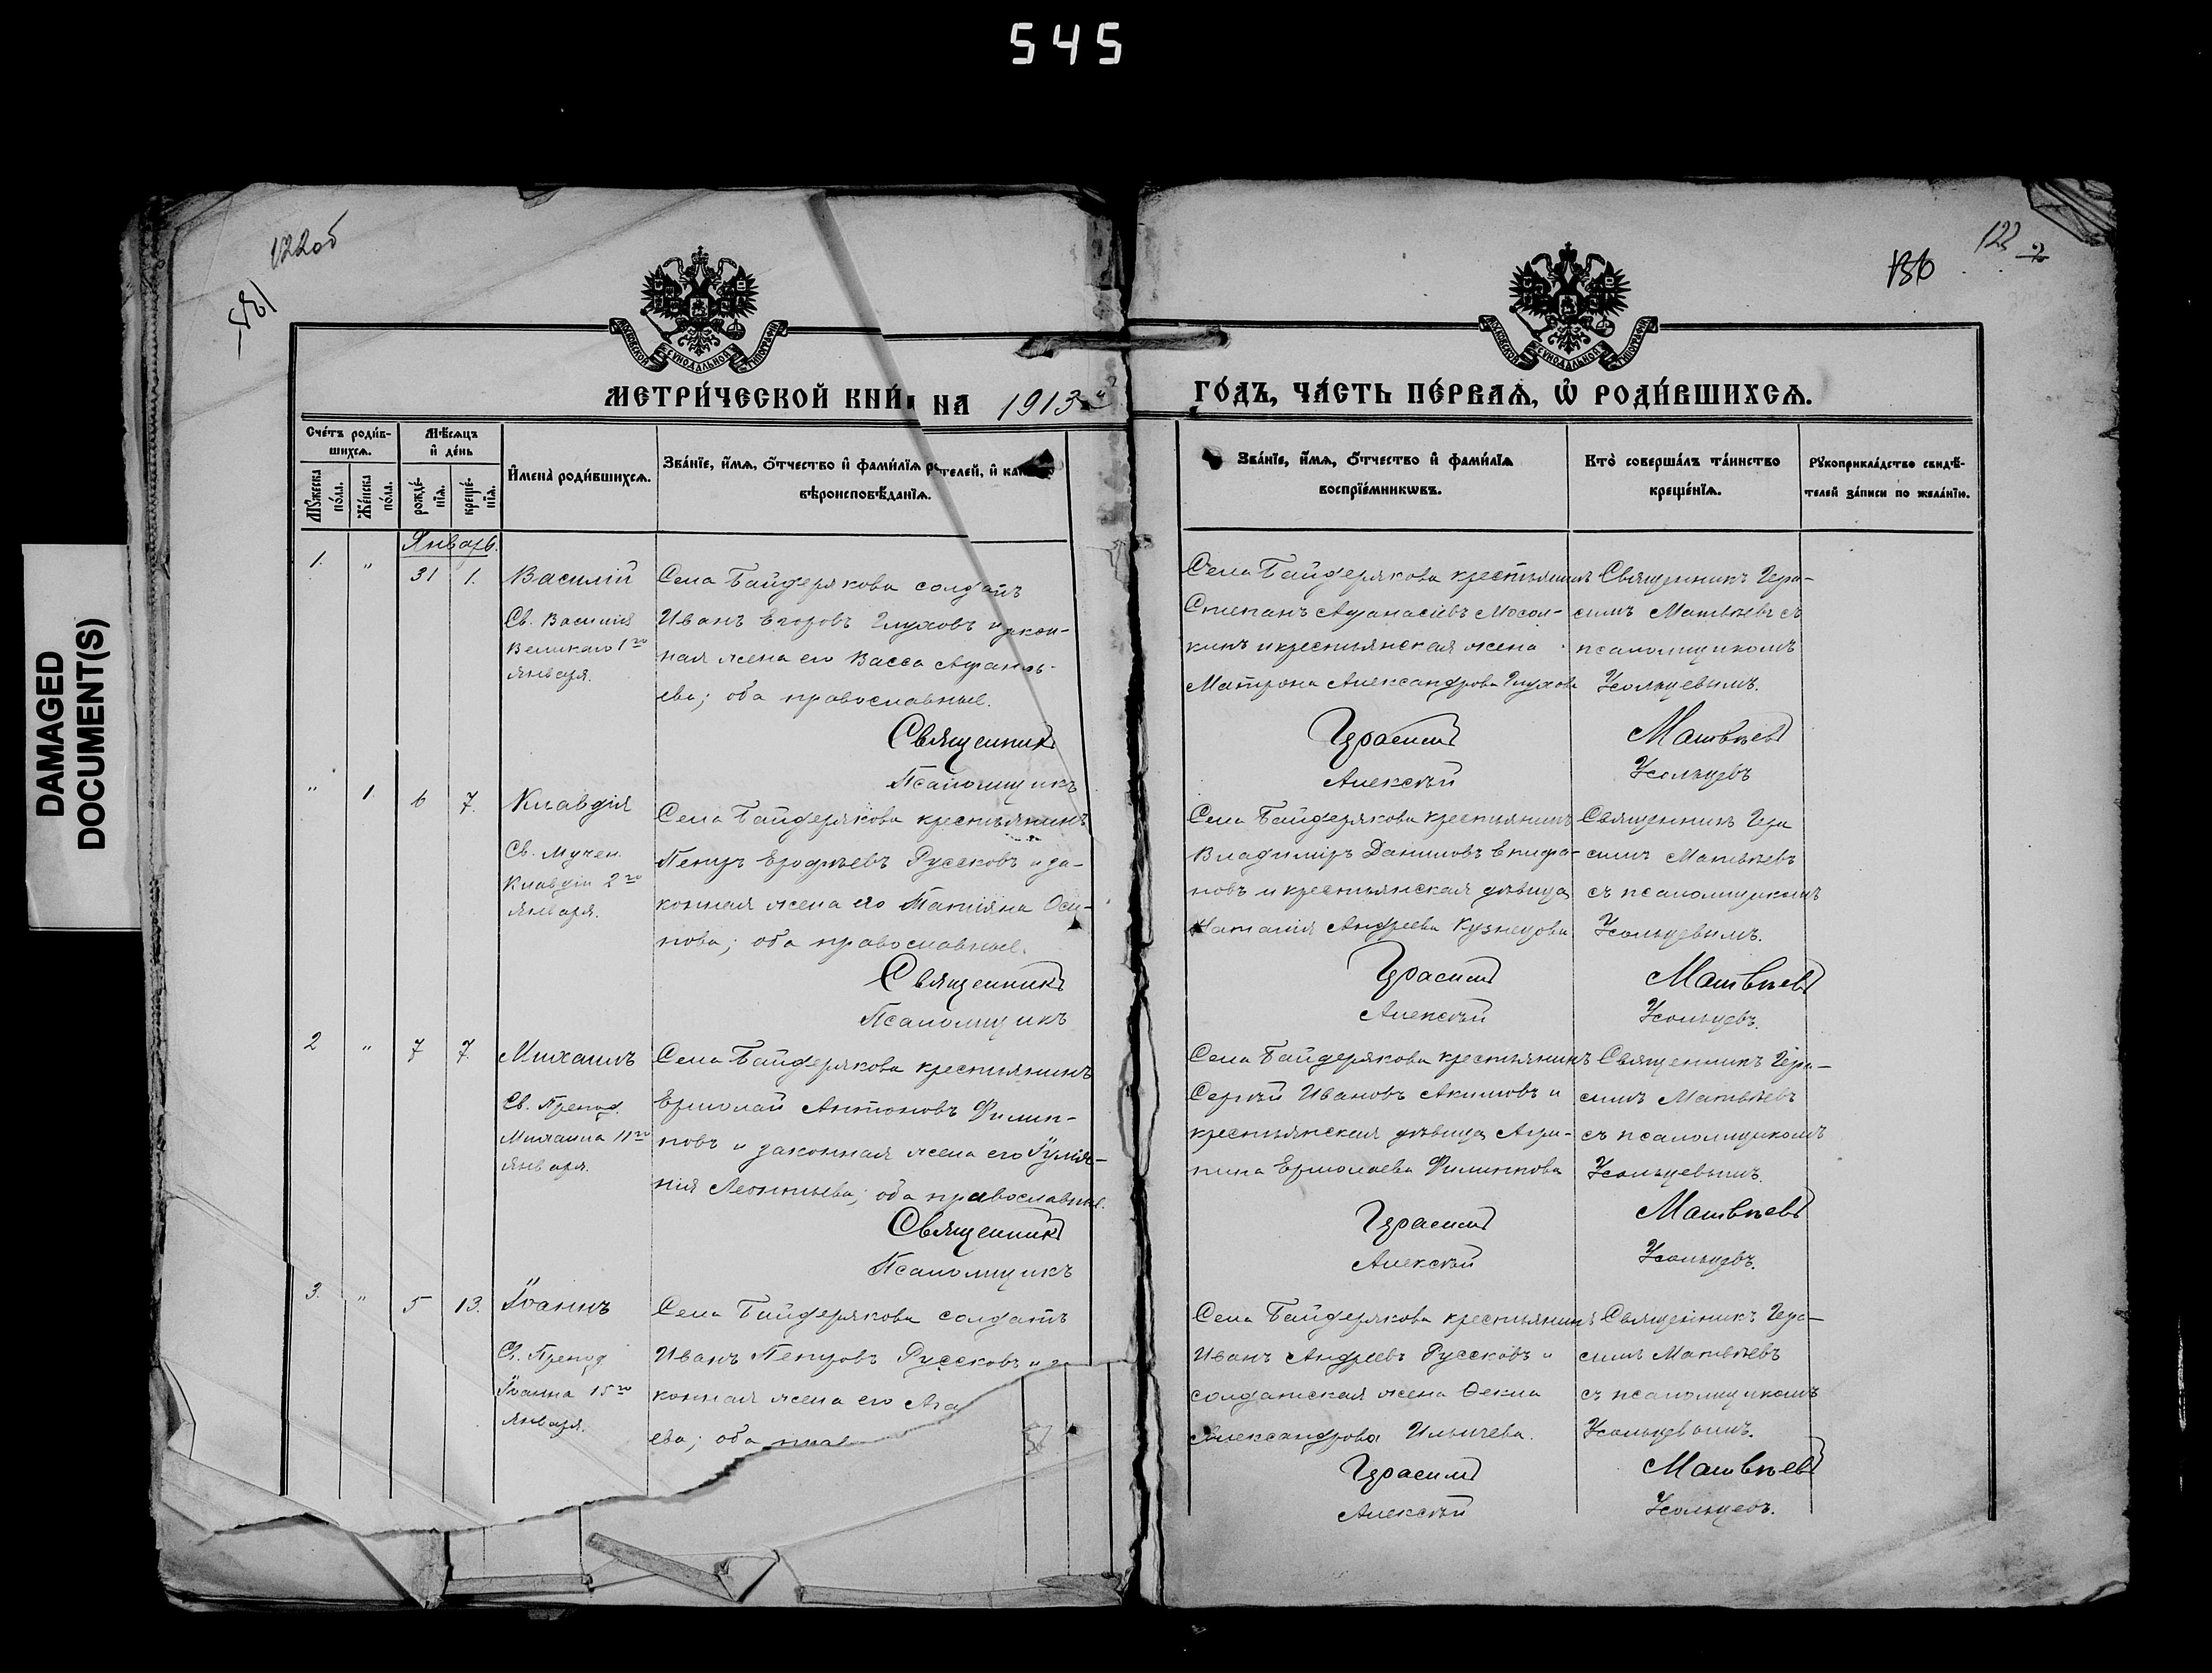 545
DAMAGED
DOCUMENT(S)
122об
581
123 2
МЕТРИ́ЧЕСКОЙ КНИ́ НА 1913й
ГО́ДЪ, ЧА́СТЬ ПЕ́РВАѦ, Ѡ РОДИ́ВШИХСѦ.
МОСКОВСКОЙ СѴНОДАЛЬНОЙ ТИПОГРАФІИ
МОСКОВСКОЙ СѴНОДАЛЬНОЙ ТИПОГРАФІИ
Сче́тъ роди́в-
шихсѧ.
Мꙋ́жеска по́ла.
Же́нска по́ла.
Мѣ́сѧцъ
и҆ де́нь
рожде́-
нїѧ.
креще́-
нїѧ.
И҆мена̀ роди́вшихсѧ.
Зва́нїе, и҆́мѧ, ѻ҆́тчество и҆ фами́лїѧ телей, и҆
вѣроисповѣ́данїѧ.
Зва́нїе, и҆́мѧ, ѻ҆́тчество и҆ фами́лїѧ
воспрїе́мникѡвъ.
Кто̀ соверша́лъ та́инство
креще́нїѧ.
Рꙋкоприкла́дство свидѣ́-
телей за́писи по жела́нїю.
Январь.
1. " 31 1. Василій
Св. Василія
Великаго 1го
января.
Села Байдерякова солдатъ
Иванъ Егоровъ Глуховъ и закон-
ная жена его Васса Афанась-
ева; оба православные.
Священникъ
Псаломщикъ
Села Байдерякова крестьянинъ
Степанъ Афанасіевъ Мосол-
кинъ и крестьянская жена
Матрона Александрова Глухова
Герасимъ
Алексѣй
Священникъ Гера-
симъ Матвѣевъ съ
псаломщикомъ
Усольцевымъ.
Матвѣевъ
Усольцевъ
" 1. 6 7. Клавдія
Св. Мучен.
Клавдіи 2го
января.
Села Байдерякова крестьянинъ
Петръ Ерофѣевъ Руссковъ и за-
конная жена его Татіяна Оси-
пова; оба православные.
Священникъ
Псаломщикъ
Села Байдерякова крестьянинъ
Владиміръ Даниловъ Епифа-
новъ и крестьянская дѣвица
Наталія Андреева Кузнецова
Герасимъ
Алексѣй
Священникъ Гера
симъ Матвѣевъ
съ псаломщикомъ
Усольцевымъ.
Матвѣевъ
Усольцевъ.
2 " 7 7. Михаилъ
Св. Препод.
Михаила 11го
января.
Села Байдерякова крестьянинъ
Ермолай Антоновъ Филип-
повъ и законная жена его Іуліа-
нія Леонтьева; оба православные.
Священникъ
Псаломщикъ
Села Байдерякова крестьянинъ
Сергѣй Ивановъ Акимовъ и
крестьянская дѣвица Агри-
пина Ермолаева Филиппова
Герасимъ
Алексѣй
Священникъ Гера-
симъ Матвѣевъ
съ псаломщикомъ
Усольцевымъ.
Матвѣевъ
Усольцевъ.
3. " 5 13. Іоаннъ
Св. Препод
Іоанна 15го
января.
Села Байдерякова солдатъ
Иванъ Петровъ Руссковъ и за
конная жена его Ага
ева; оба прав
Села Байдерякова крестьянинъ
Иванъ Андреевъ Руссковъ и
солдатская жена Ѳекла
Александрова Ильичева.
Герасимъ
Алексѣй
Священникъ Гера-
симъ Матвѣевъ
съ псаломщикомъ
Усольцевымъ.
Матвѣевъ
Усольцевъ.